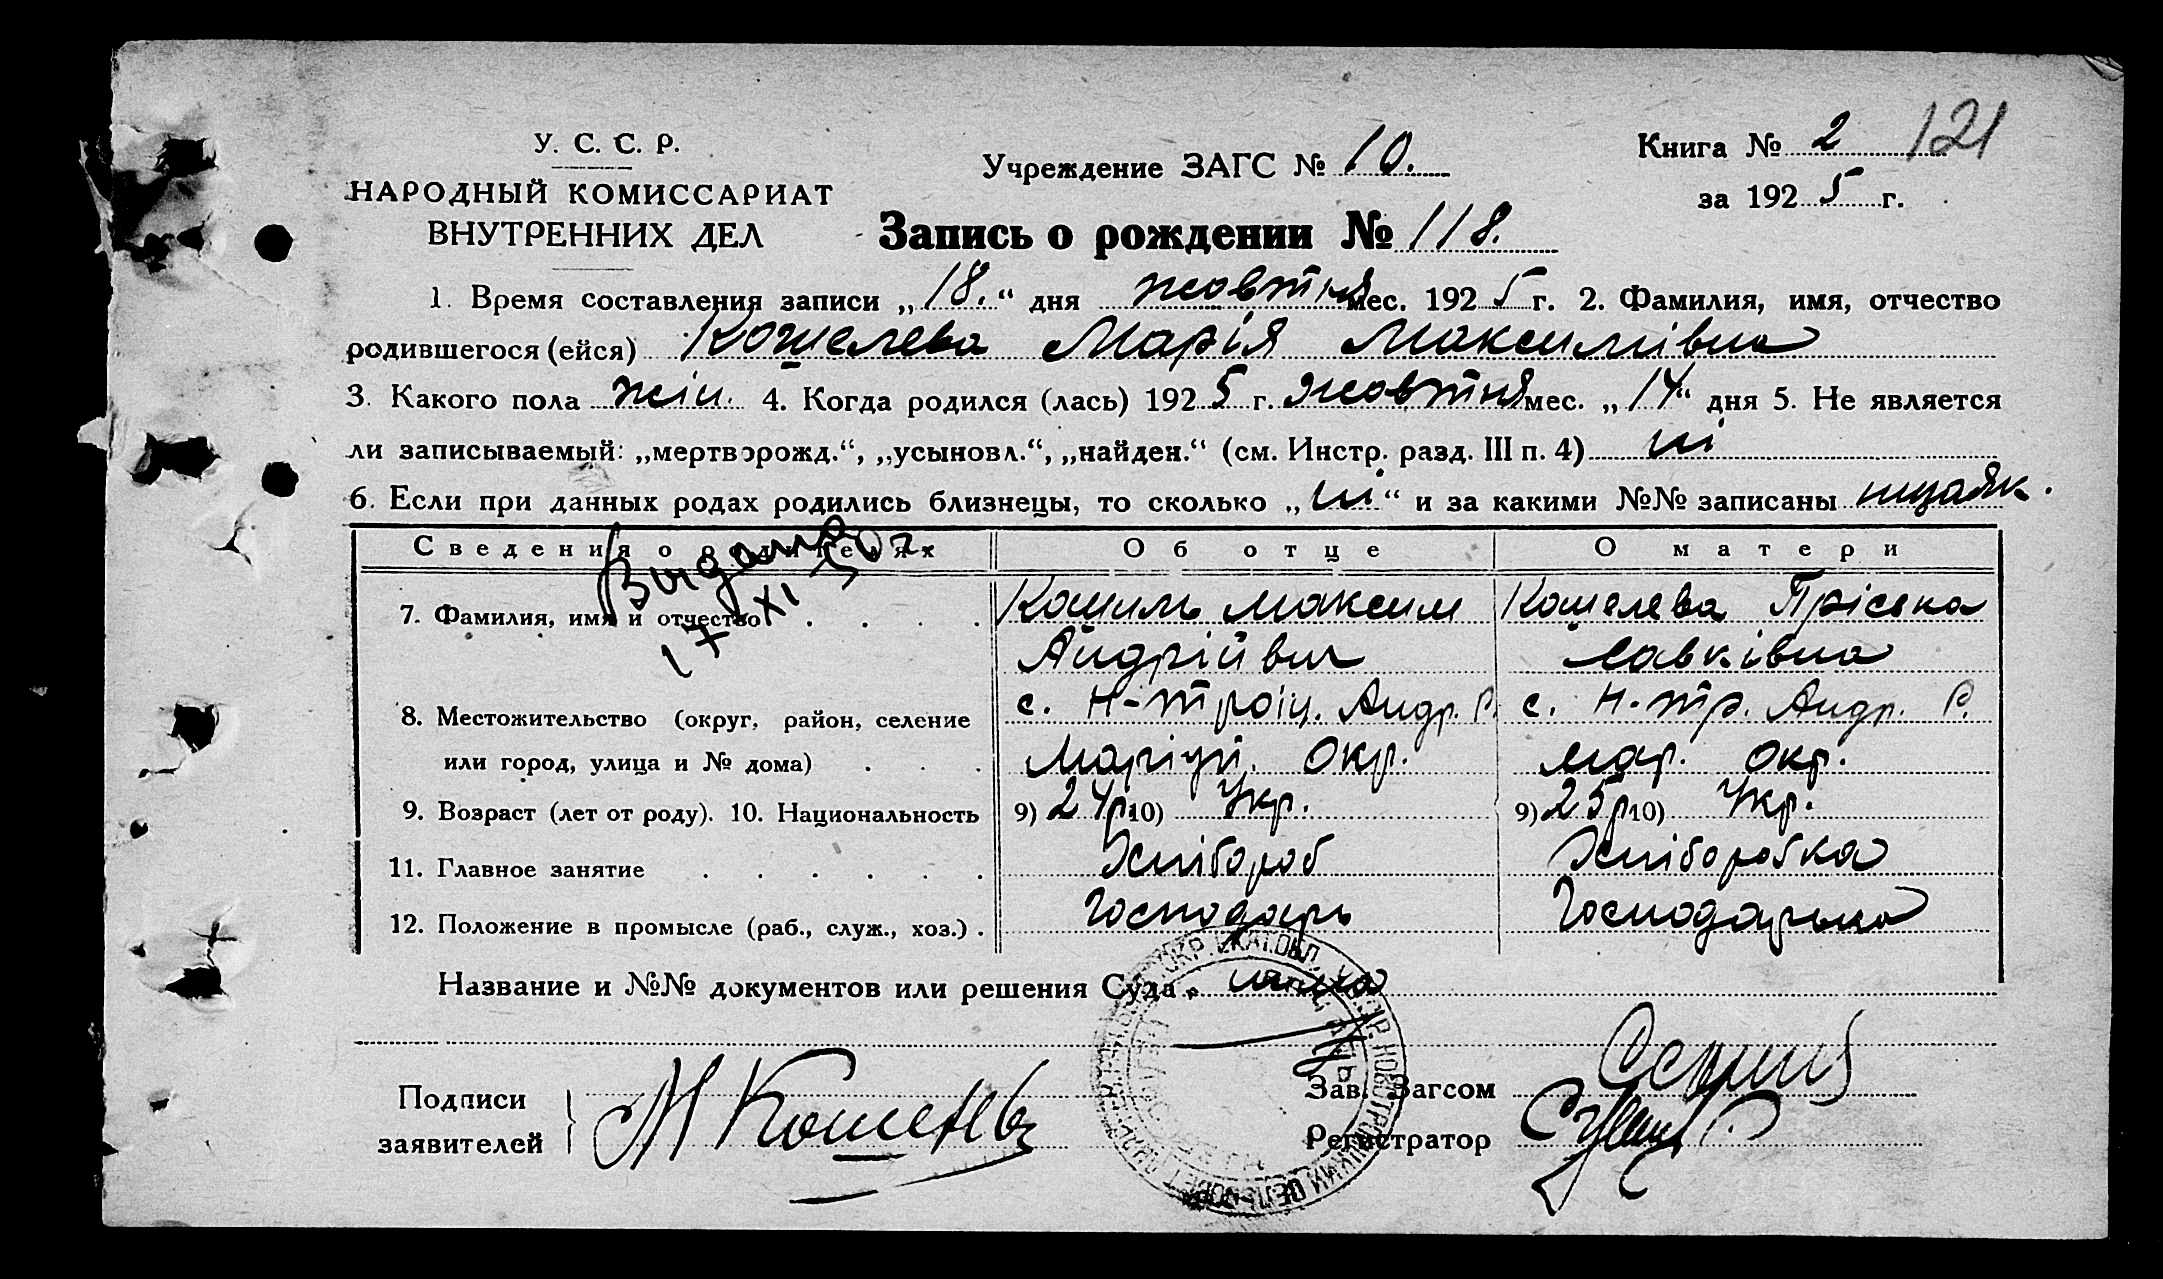 У. С. С. Р.
НАРОДНЫЙ КОМИССАРИАТ
ВНУТРЕННИХ ДЕЛ
Учреждение ЗАГС № 10.
Книга № 2 121
за 1925 г.
Запись о рождении № 118.
1. Время составления записи „18.“ дня жовтня мес. 1925 г. 2. Фамилия, имя, отчество
родившегося (ейся) Кошелева Марія Максимівна
3. Какого пола жін. 4. Когда родился (лась) 1925 г. жовтня мес. „14“ дня 5. Не является
ли записываемый: „мертворожд.“, „усыновл.“, „найден.“ (см. Инстр. разд. III п. 4) ні
6. Если при данных родах родились близнецы, то сколько „ні“ и за какими №№ записаны
Сведения о родителях Об отце О матери
17 XI 50 г.
7. Фамилия, имя и отчество . . . . Кошиль Максим Кошелева Пріська
Андрійвич Савківна
8. Местожительство (округ, район, селение с. Н-Троіц. Андр. Р. с. Н-Тр. Андр. Р.
или город, улица и № дома) . . . Маріуп. Окр. Мар. Окр.
9. Возраст (лет от роду). 10. Национальность 9) 24р 10) Укр. 9) 25р 10) Укр.
11. Главное занятие . . . . . . Хлібороб Хліборобка
12. Положение в промысле (раб., служ., хоз.) . Господарь Господарька
Название и №№ документов или решения Суда
Подписи
заявителей
М Кошель
Зав. Загсом
Регистратор